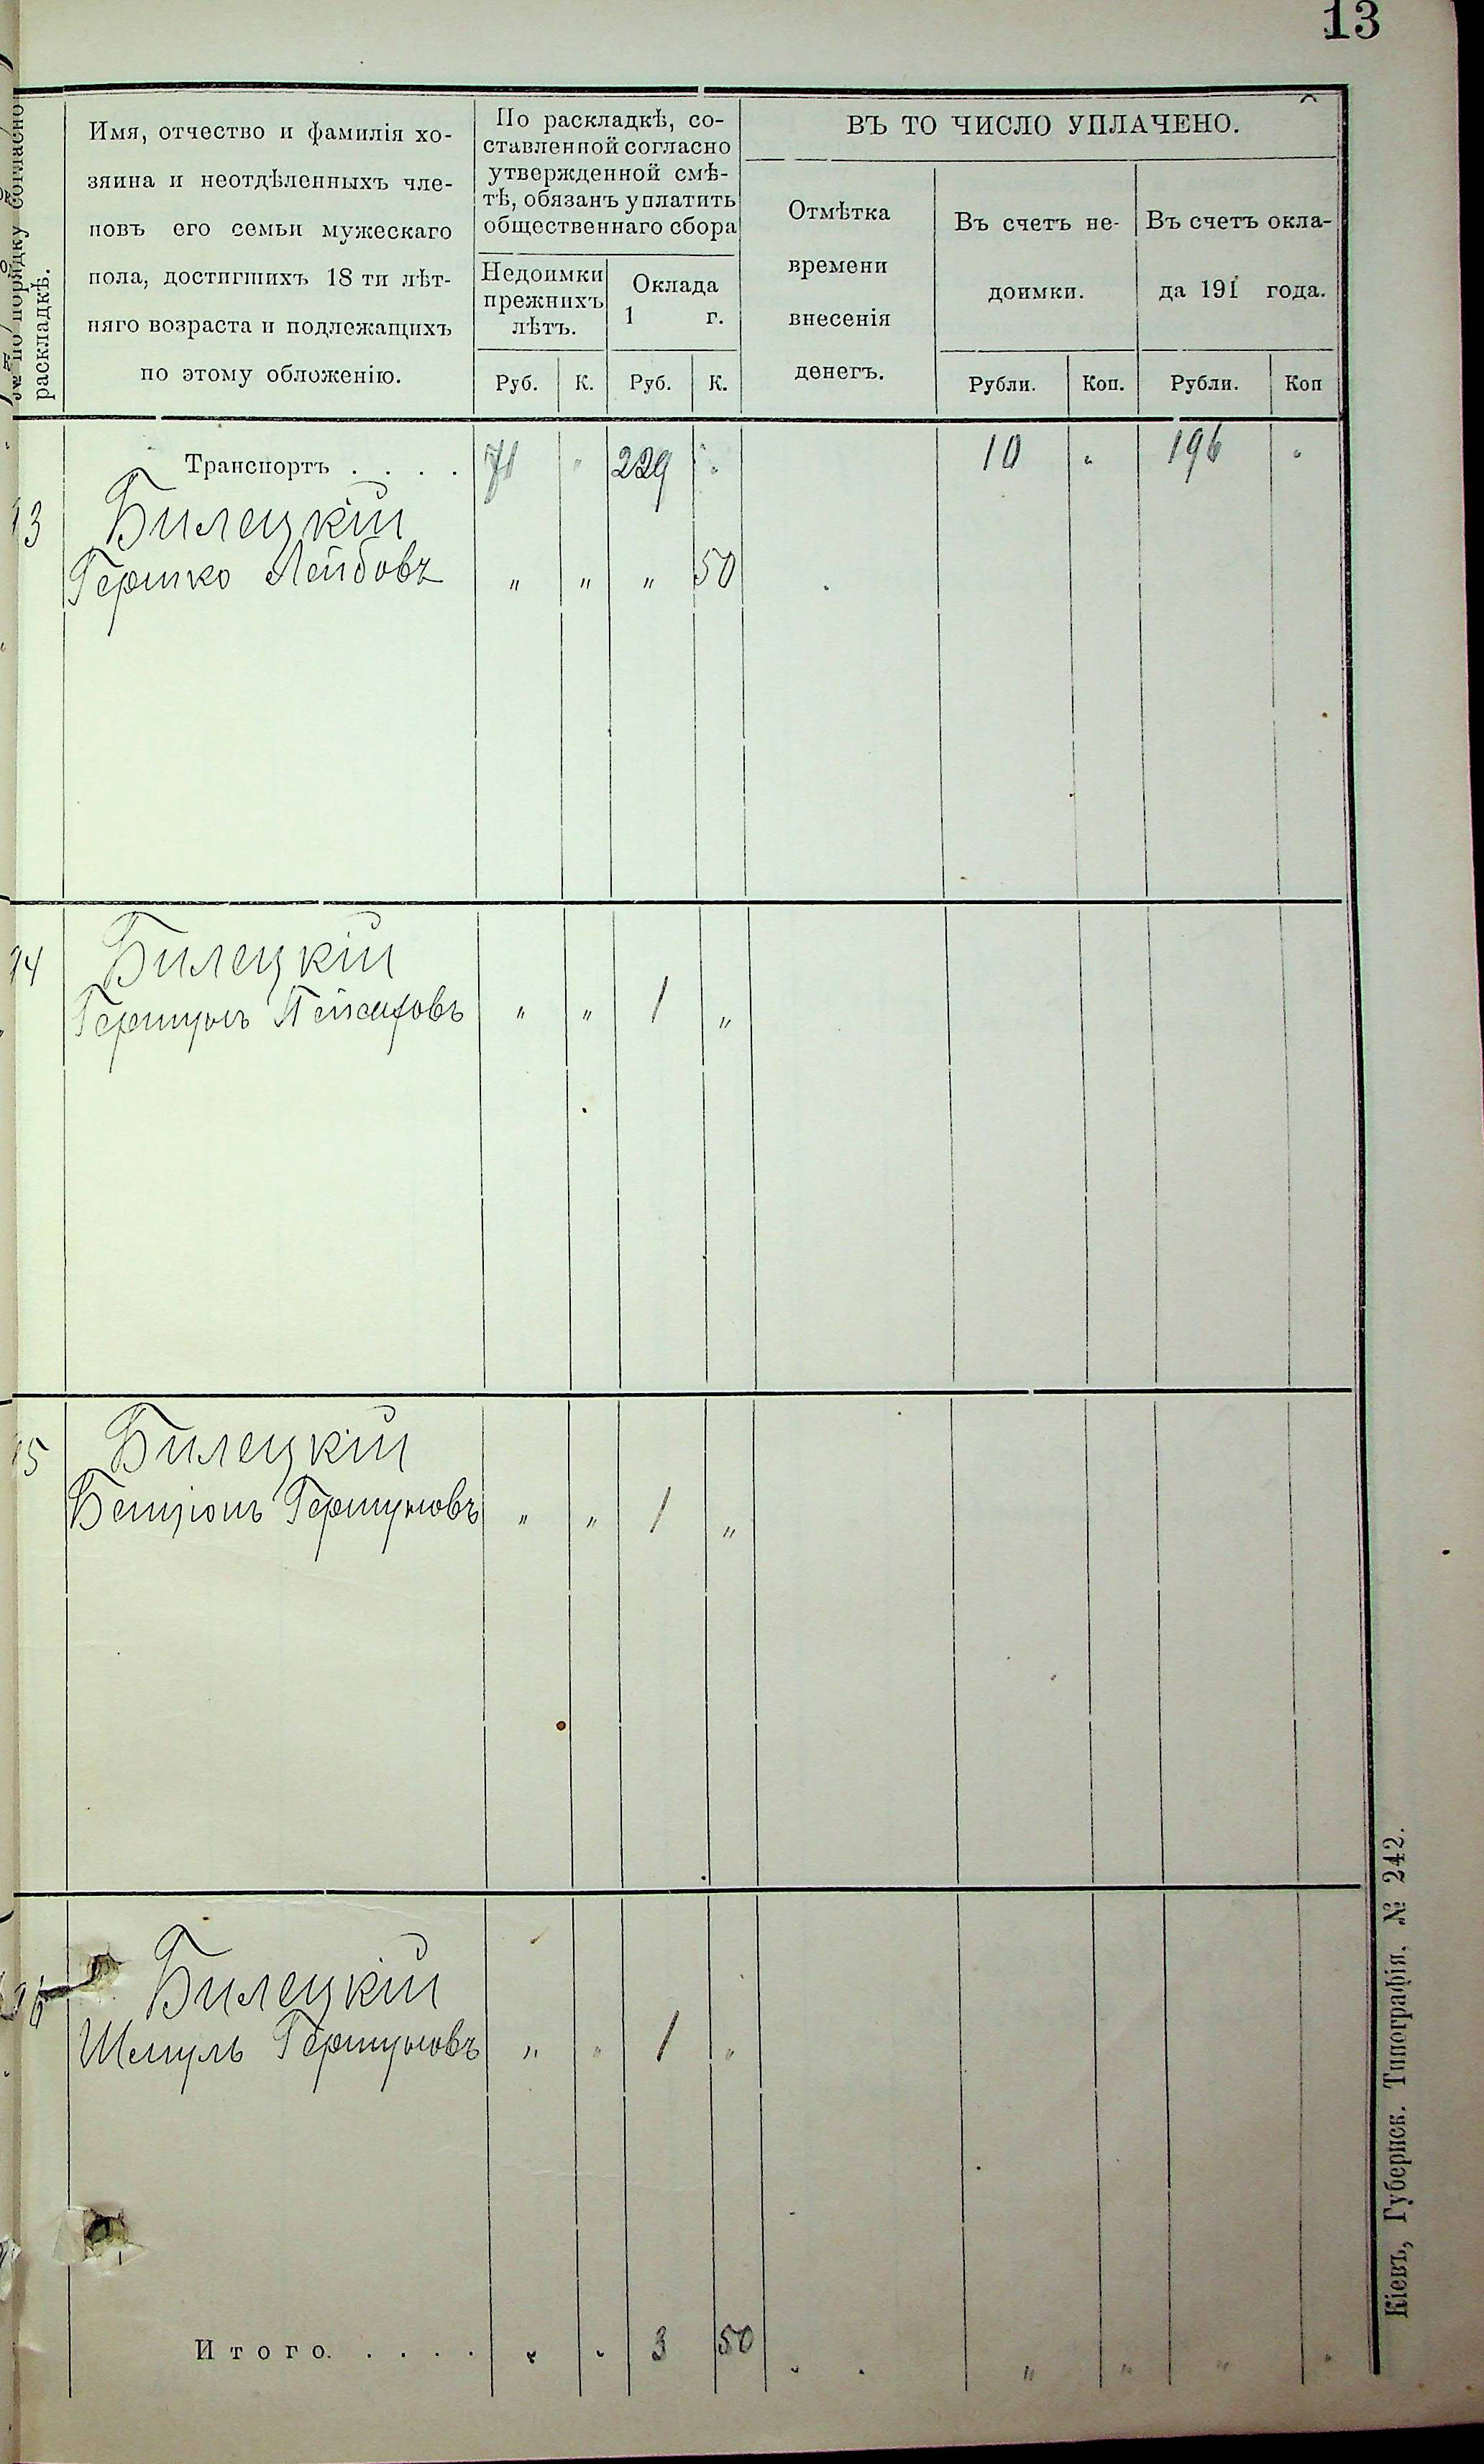 13
№ по порядку согласно
раскладкѣ.
Имя, отчество и фамилія хо-
зяина и неотдѣленныхъ чле-
новъ его семьи мужескаго
пола, достигшихъ 18 ти лѣт-
няго возраста и подлежащихъ
по этому обложенію.
По раскладкѣ, со-
ставленной согласно
утвержденной смѣ-
тѣ, обязанъ уплатить
общественнаго сбора
Недоимки
прежнихъ
лѣтъ.
Оклада
1 г.
Руб. К. Руб. К.
ВЪ ТО ЧИСЛО УПЛАЧЕНО.
Отмѣтка
времени
внесенія
денегъ.
Въ счетъ не-
доимки.
Рубли. Коп.
Въ счетъ окла-
да 191 года.
Рубли. Коп
Транспортъ . . . . 71 " 229 " 10 " 196 "
93 Билецкій
Гершко Лейбовъ " " " 50
94 Билецкій
Гершунъ Пейсаховъ " " 1 "
95 Билецкій
Бенціонъ Гершуновъ " " 1 "
96 Билецкій
Шмуль Гершуновъ " " 1 "
Итого. . . . . " " 3 50 " " " "
Кіевъ, Губернск. Типографія, № 242.